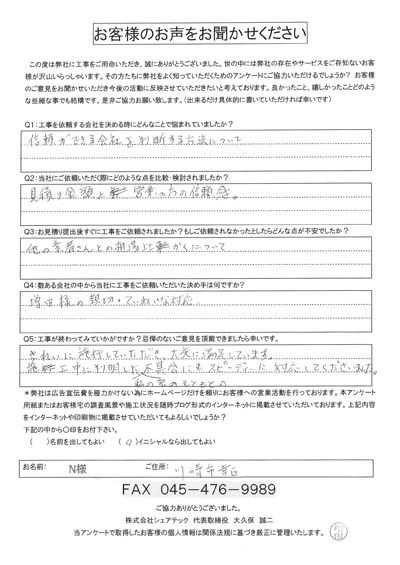 お客様のお声をお聞かせください
この度は弊社に工事をご用命いただき、誠にありがとうございました。世の中には弊社の存在やサービスをご存知ないお客
様が沢山いらっしゃいます。その方たちに弊社をよく知っていただくためのアンケートにご協力いただけるでしょうか？ お客様
のご意見をお聞かせいただき今後の活動に反映させていただきたいと考えております。良かったこと、嬉しかったことどのよう
な些細な事でも結構です。是非ご協力お願い致します。（出来るだけ具体的に書いていただければ幸いです）
Q1：工事を依頼する会社を決める時にどんなことで悩まれていましたか？
信頼ができる会社を判断する方法について
Q2：当社にご依頼いただく際にどのような点を比較・検討されましたか？
見積り金額と 営業の方の信頼感。
Q3：お見積り提出後すぐに工事をご依頼されましたか？もしご依頼されなかったとしたらどんな点が不安でしたか？
他の業者さんとの相場比較について
Q4：数ある会社の中から当社に工事をご依頼いただいた決め手は何ですか？
増田様の親切・ていねいな対応。
Q5：工事が終わってみていかがですか？忌憚のないご意見を頂戴できましたら幸いです。
きれいに施行していただき、大変に満足しています。
施工中に判明した不具合にもスピーディーに対応してくださいました。
私の家のもともとの
＊弊社は広告宣伝費を極力かけない為にホームページだけを頼りにお客様への営業活動を行っております。本アンケート
用紙またはお客様宅の調査風景や施工状況を随時ブログ形式のインターネットに掲載させていただいております。上記内容
をインターネットや印刷物に掲載させていただいてもよろしいでしょうか？
下記の中から〇印をお付下さい。
（ ）名前を出してもよい （〇）イニシャルなら出してもよい
お名前： N様 ご住所： 川崎市
FAX 045-476-9989
ご協力ありがとうございました。
株式会社シェアテック 代表取締役 大久保 誠二
当アンケートで取得したお客様の個人情報は関係法規に基づき厳正に管理いたします。